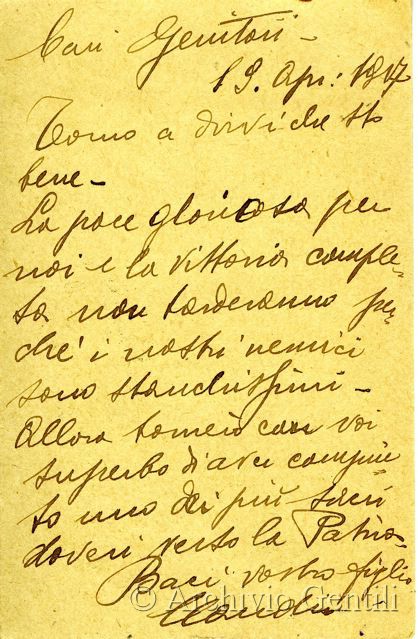 Cari Genitori -
19. Apr: 1917
Torno a dirvi che sto
bene -
La pace gloriosa per
noi e la vittoria comple-
ta non tarderanno per-
ché i nostri nemici
sono stanchissimi -
Allora tornerò con voi
superbo d'aver compiu-
to uno dei più sacri
doveri verso la Patria -
Baci vostro figlio
© Archivio Gentili